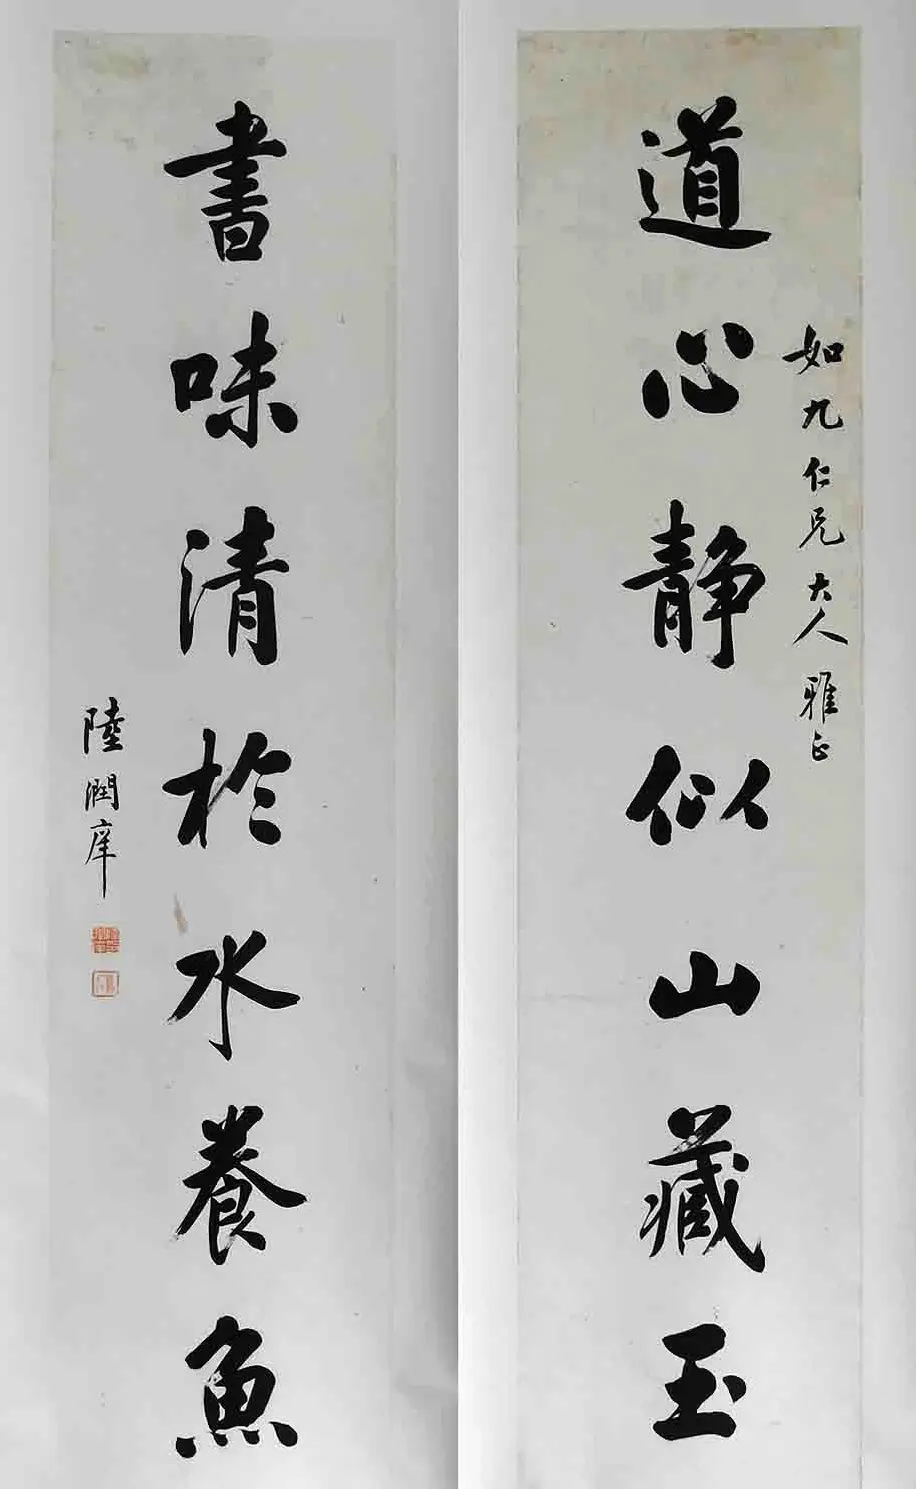 道心静似山藏玉
如九仁兄大人雅正
書味清於水養魚
陸潤庠